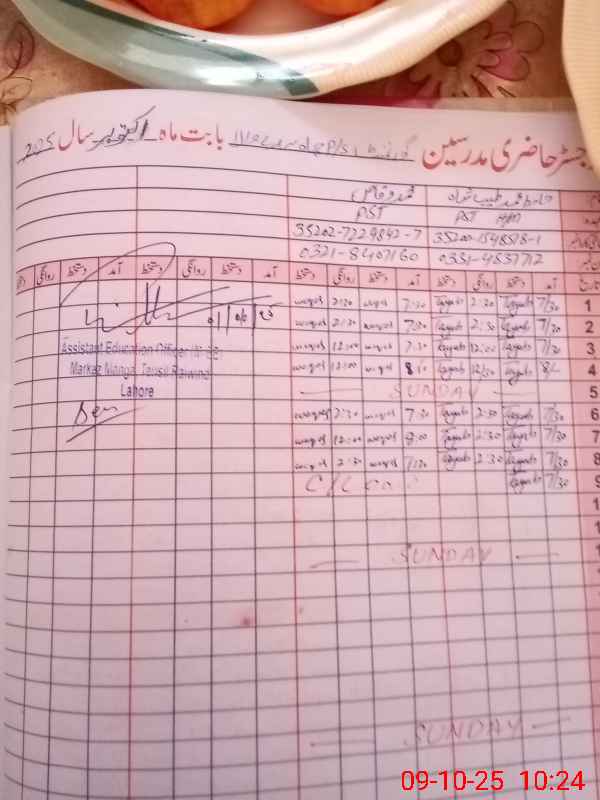 رجسٹر حاضری مدرسین گورنمنٹ P/S بابت ماہ اکتوبر سال 2025
محمد وقاص حافظ محمد طیب شاہ
PST PST
35202-7229842-7 35200-1548518-1
0321-8407160 0331-4537712
تاریخ آمد دستخط روانگی دستخط آمد دستخط روانگی دستخط آمد دستخط روانگی دستخط آمد دستخط روانگی
1 7/30 Tayyab 2:30 Tayyab 7:30 waqas 2:30 waqas
2 7/30 Tayyab 2:30 Tayyab 7:30 waqas 2:30 waqas
3 7/30 Tayyab 12:00 Tayyab 7:30 waqas 12:00 waqas
4 Tayyab Tayyab waqas 12:00 waqas
5 SUNDAY
6 7/30 Tayyab 2:30 Tayyab 7:30 waqas 2:30 waqas
7 7/30 Tayyab 2:30 Tayyab 8:00 waqas 12:00 waqas
8 7/30 Tayyab 2:30 Tayyab waqas 2:30 waqas
9 7/30 Tayyab
Assistant Education Officer
Markaz Manga Tehsil Raiwind
Lahore
SUNDAY
SUNDAY
09-10-25 10:24